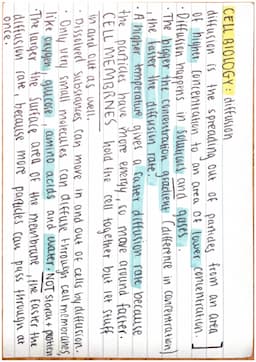 CELL BIOLOGY: diffusion
diffusion is the spreading out of particles from an area
of higher concentration to an area of lower concentration
· Diffusion happens in solutions and gases.
· The bigger the concentration gradient (difference in concentration)
, the faster the diffusion rate.
· A higher temperature gives a faster diffusion rate because
the particles have more energy, so move around faster.
CELL MEMBRANES hold the cell together but let stuff
in and out as well.
· Dissolved substances can move in and out of cells by diffusion.
· Only very small molecules can diffuse through cell membranes
like oxygen, glucose, amino acids and water. NOT starch + protein
· The larger the surface area of the membrane, the faster the
diffusion rate because more particles can pass through at
once.